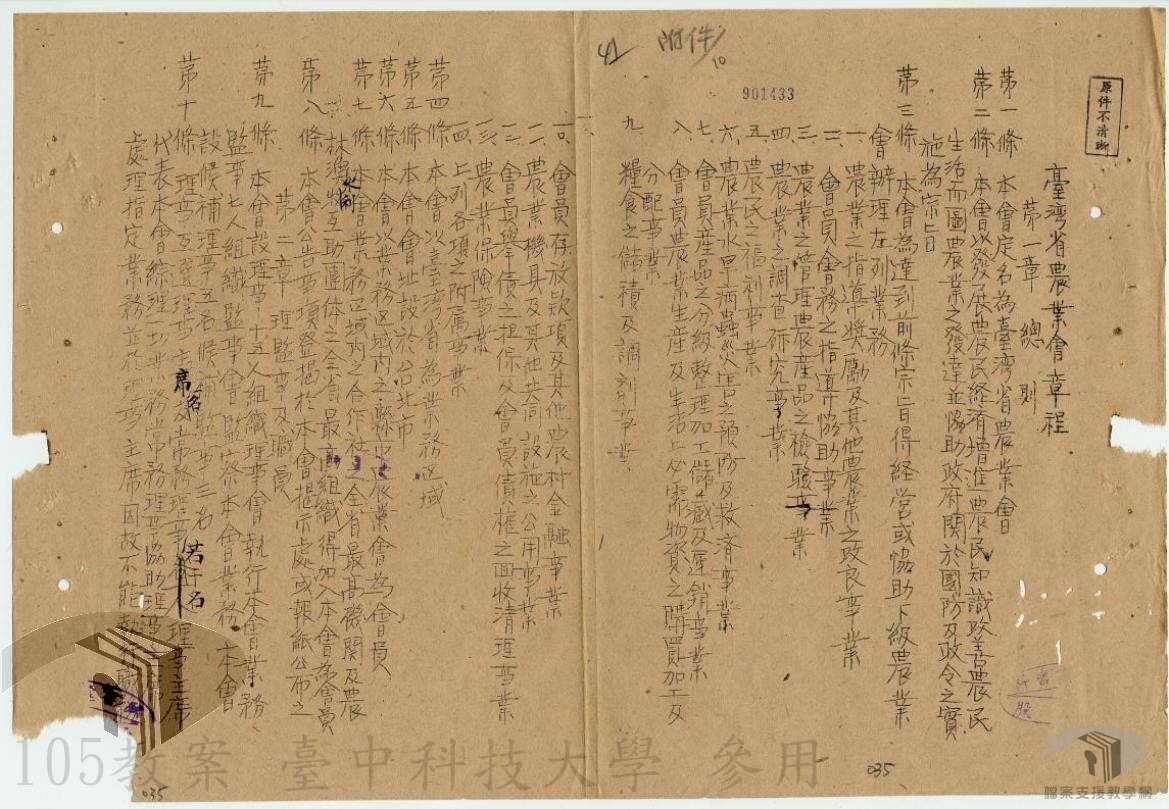 原件不清晰
附件/10
41
901433
臺灣省農業會章程
第一章 總則
第一條 本會定名為臺灣省農業會
第二條 本會以發展農民経濟增進農民知識改善農民
生活而圖農業之發達並協助政府関於國防及政令之實
施為宗旨
第三條 本會為達到前條宗旨得経営或協助下級農業
會辦理左列業務
一、農業之指導奬勵及其他農業之改良事業
二、會員會務之指導協助事業
三、農業之管理農産品之檢驗事業
四、農業之調查研究事業
五、農民之福利事業
六、農業水旱病蟲災害之預防及救濟事業
七、會員産品之分級整理加工儲藏及運銷事業
八、會員農業生産及生活上必需物資之購買加工及
分配事業
九、糧食之儲積及調剂事業
一〇、會員存放款項及其他農村金融事業
一一、農業機具及其他共同設施之公用事業
一二、會員舉債之担保及會員債權之面收清理事業
一三、農業保険事業
一四、上列各項之附属事業
第四條 本會以臺灣省為業務区域
第五條 本會會址設於台北市
第六條 本會以業務区域内之縣市農業會為會員
第七條 本會業務区域内之合作社之全省最髙機関及農
林漁牧水利互助團体之全省最髙組織得加入本會為會員
第八條 本會公告事項登揭於本會揭示處或報紙公布之
第二章 理監事及職員
第九條 本會設理事十五人組織理事會執行本會日業務
監事七人組織監事會監察本會業務 本會
設候補理事五名候補監事三名
第十條 理事互選理事主席名及常務理事若干名 理事主席
代表本會綜理一切業務常務理事協助理事主席
處理指定業務並於理事主席因故不能執行職
035
035
105教案 臺中科技大學 參用
檔案支援教學網